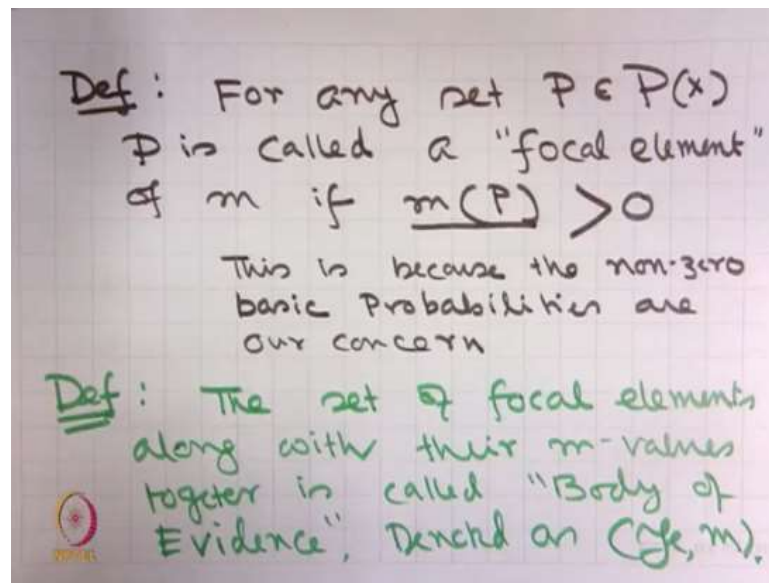 Def : For any set P ∈ P(x)
P is called a "focal element"
of m if m(P) > 0
This is because the non-zero
basic Probabilities are
our concern
Def : The set of focal elements
along with their m-values
togeter is called "Body of
Evidence". Denoted as (ℱ, m).
NPTEL